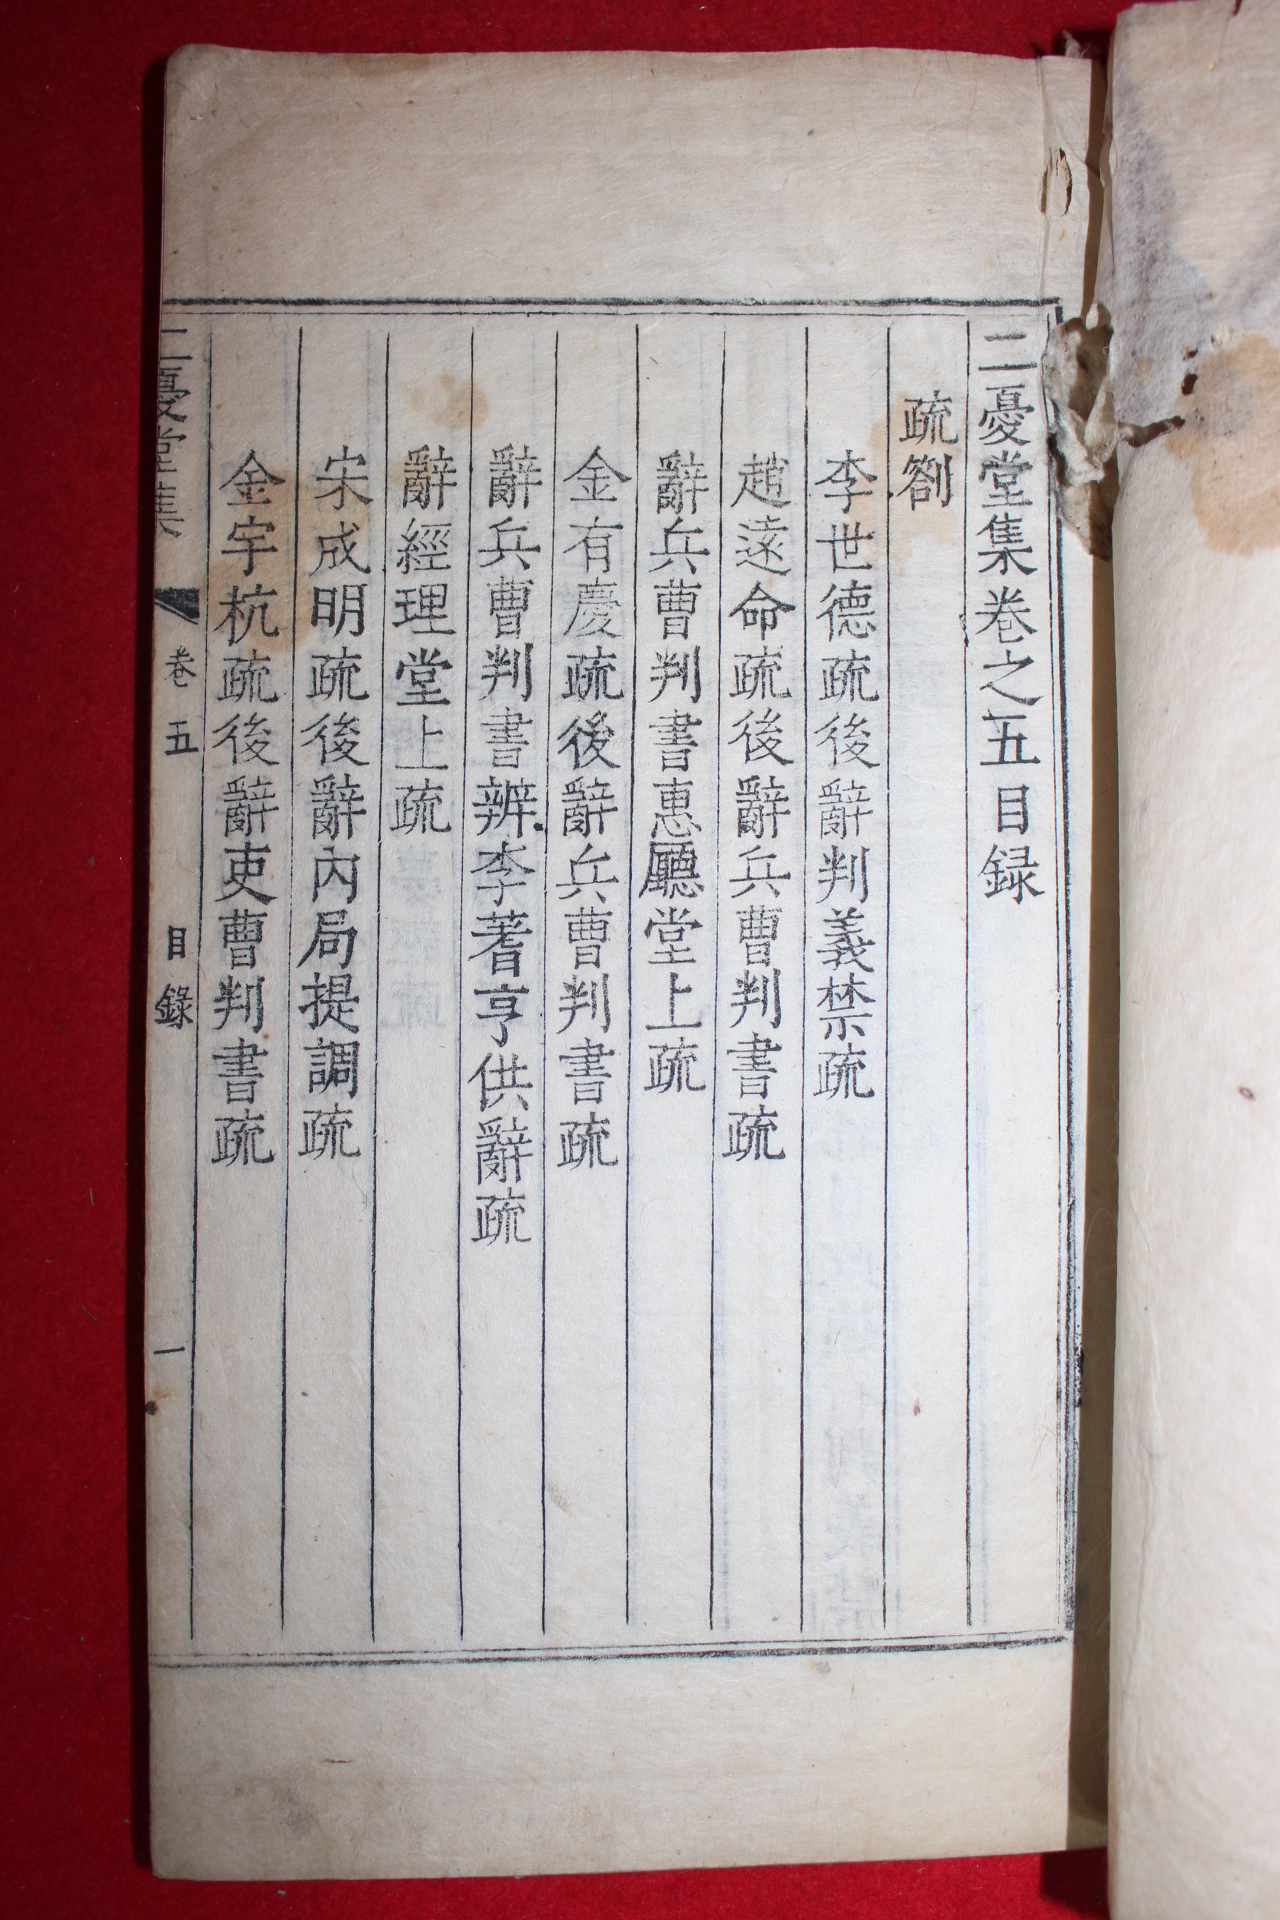 二憂堂集卷之五目録
疏劄
李世德疏後辭判義禁疏
趙遠命疏後辭兵曹判書疏
辭兵曹判書惠廳堂上疏
金有慶疏後辭兵曹判書疏
辭兵曹判書辨李蓍亨供辭疏
辭經理堂上疏
宋成明疏後辭內局提調疏
金宇杭疏後辭吏曹判書疏
二憂堂集
卷五
目錄
一